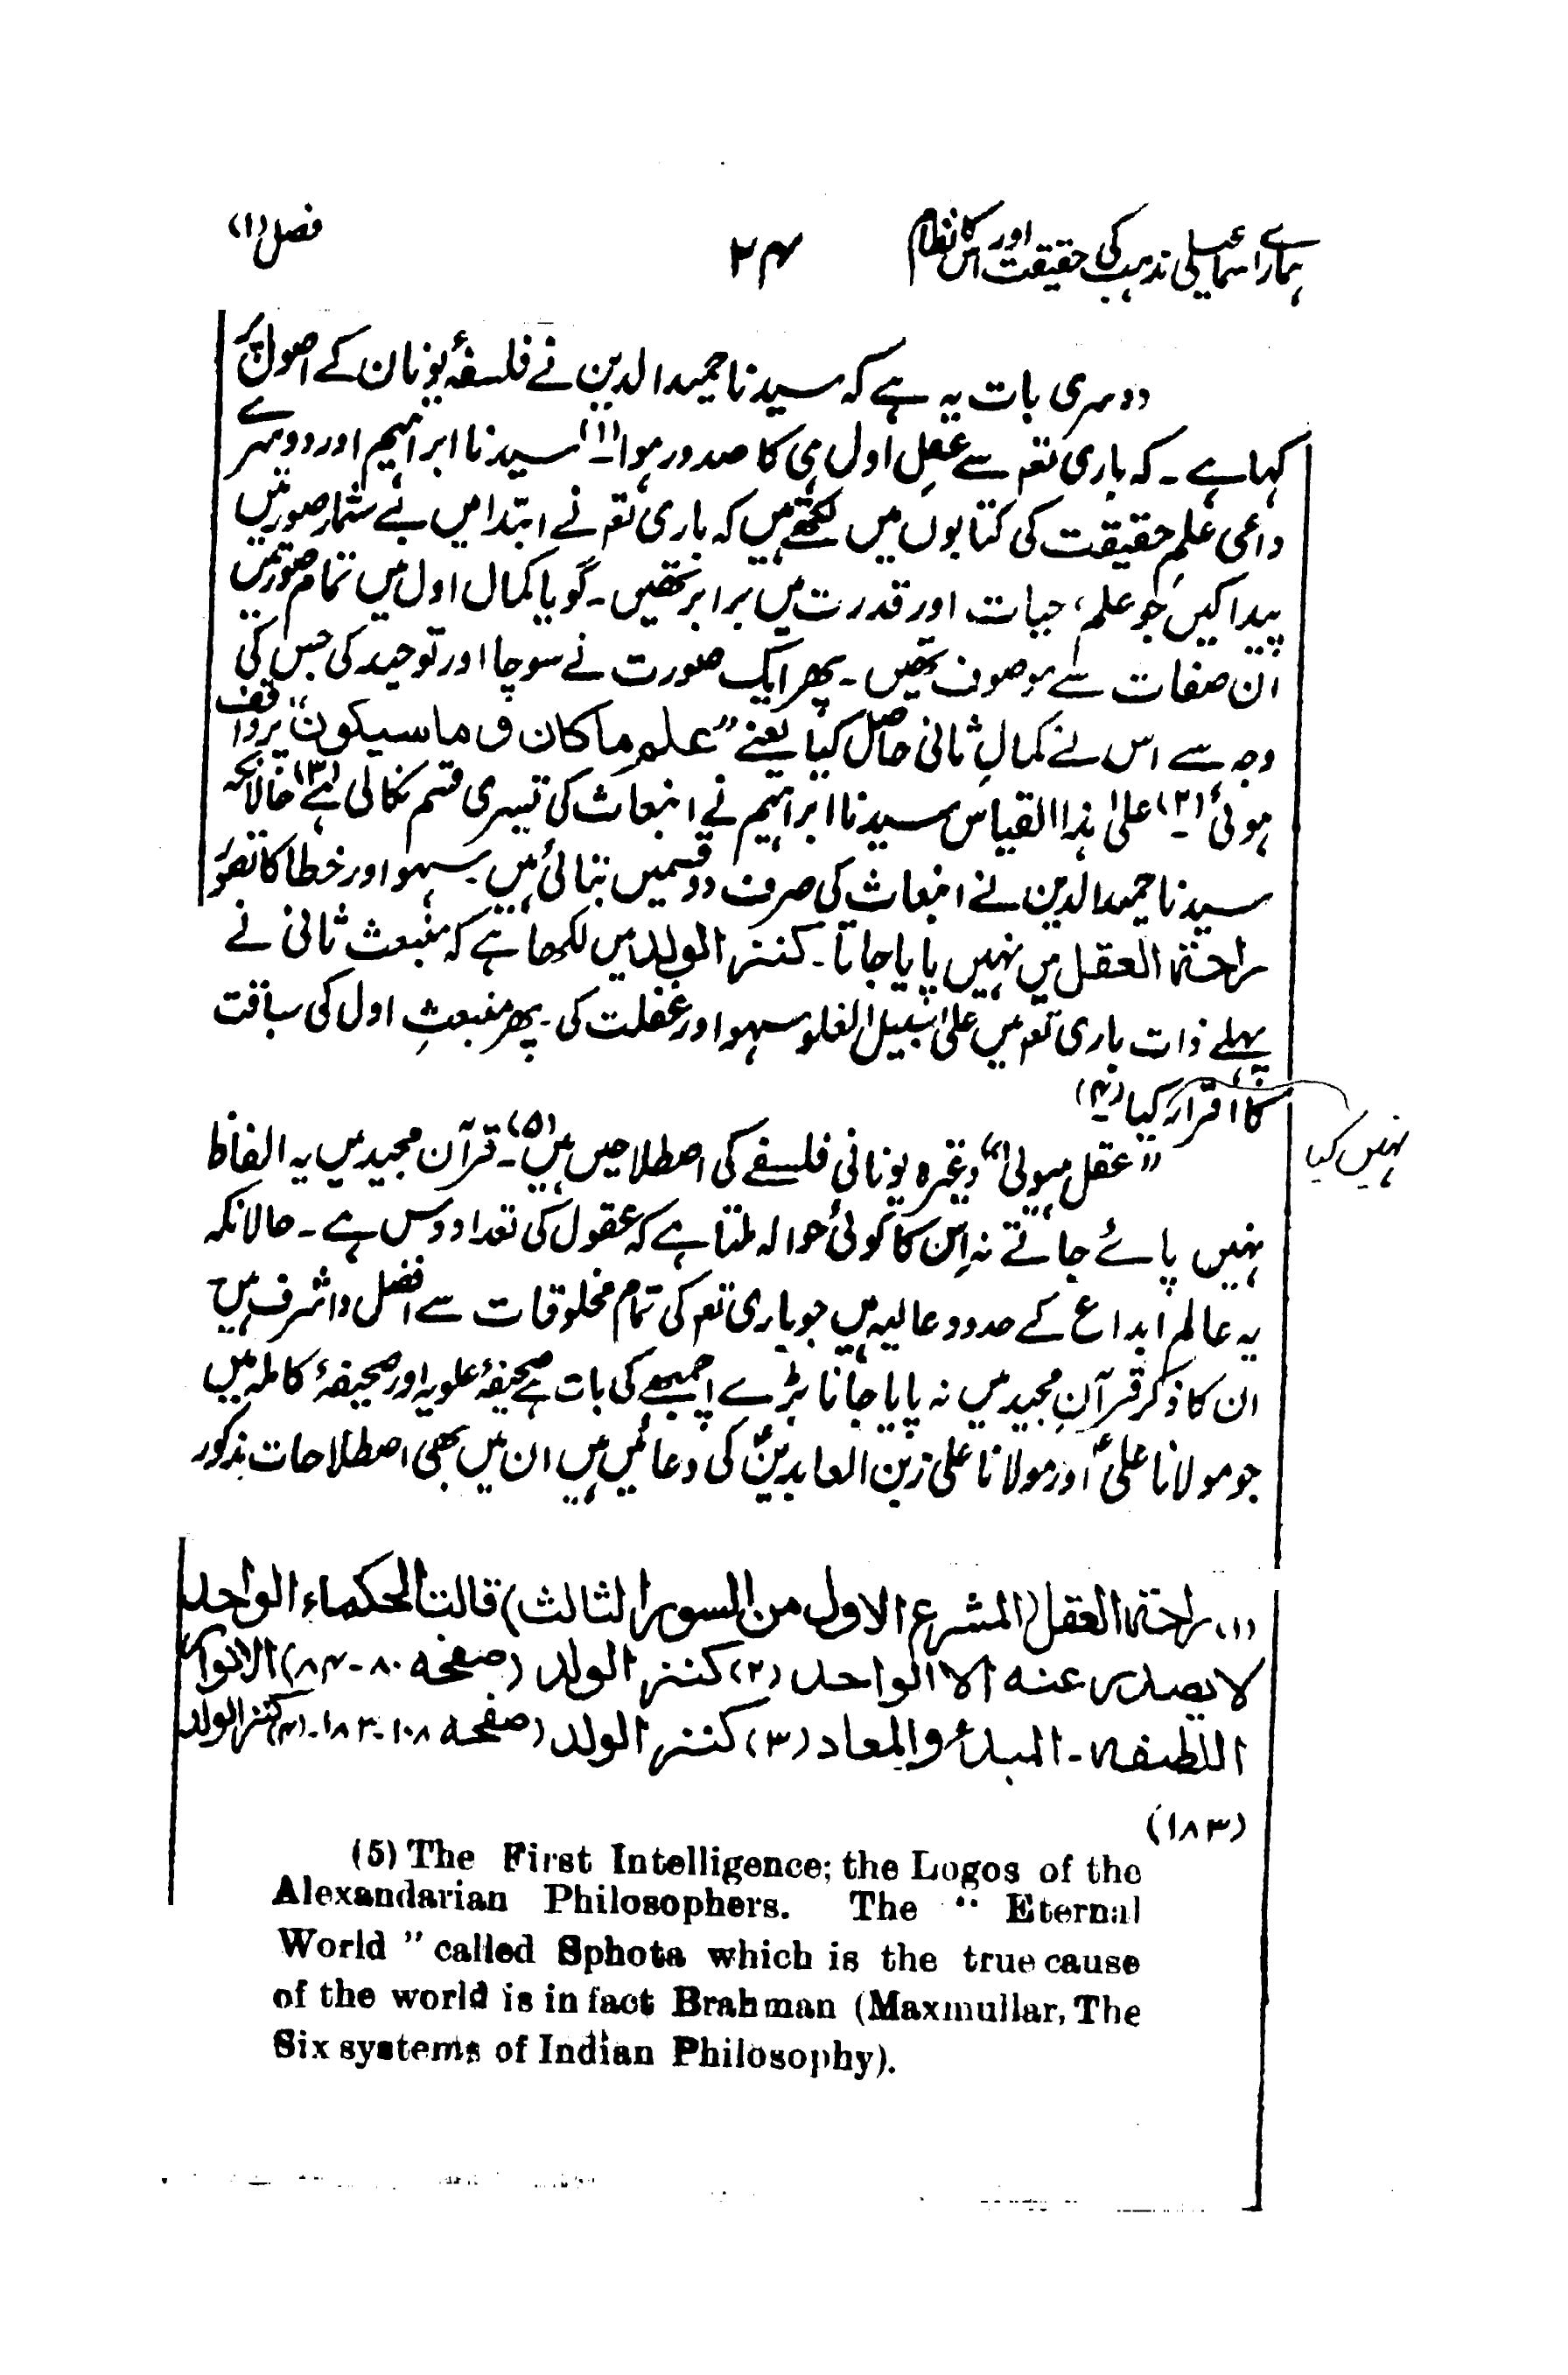 ہمارے اسماعیلی مذہب کی حقیقت اور اس کا نظام
۲۴
فصل (۱)
دوسری بات یہ ہے کہ سیدنا حمید الدین نے فلسفۂ یونان کے اصول پر
کہا ہے ۔ کہ باری تعہ سے عقلِ اول ہی کا صدور ہوا (۱)۔ سیدنا ابراہیم اور دوسرے
داعی علمِ حقیقت کی کتابوں میں لکھتے ہیں کہ باری تعہ نے ابتدا میں بے شمار صورتیں
پیدا کیں جو علم، حیات اور قدرت میں برابر تھیں ۔ گویا کمال اول میں تمام صورتیں
ان صفات سے موصوف تھیں ۔ پھر ایک صورت نے سوچا اور توحید کی جس کی
وجہ سے اس نے کمالِ ثانی حاصل کیا یعنے ”علم ما کان و ما سیکون“ پر واقف
ہوئی (۲)۔ علیٰ ہذا القیاس سیدنا ابراہیم نے انبعاث کی تیسری قسم نکالی ہے (۳) حالانکہ
سیدنا حمید الدین نے انبعاث کی صرف دو قسمیں بتائی ہیں ۔ سہو اور خطا کا تصور
راحۃ العقل میں نہیں پایا جاتا ۔ کنز الولد میں لکھا ہے کہ منبعث ثانی نے
پہلے ذات باری تعہ میں علیٰ سبیل الغلو سہو اور غفلت کی ۔ پھر منبعثِ اول کی سبقت
کا اقرار کیا (۴)
نہیں کیا
”عقل ہیولیٰ“ وغیرہ یونانی فلسفے کی اصطلاحیں ہیں (۵)۔ قرآن مجید میں یہ الفاظ
نہیں پائے جاتے نہ اِس کا کوئی حوالہ ملتا ہے کہ عقول کی تعداد دس ہے ۔ حالانکہ
یہ عالم ابداع کے حدود عالیہ ہیں جو باری تعہ کی تمام مخلوقات سے افضل و اشرف ہیں
ان کا ذکر قرآنِ مجید میں نہ پایا جانا بڑے اچمبھے کی بات ہے صحیفۂ علویہ اور صحیفۂ کاملہ میں
جو مولانا علیؑ اور مولانا علی زین العابدینؑ کی دعائیں ہیں ان میں بھی اصطلاحات مذکور
(۱) راحۃ العقل (المشرع الاول من السور الثالث) قالت الحکماء الواحد
لا یصدر عنہ الا الواحد (۲) کنز الولد (صفحہ ۸۰-۸۴) الانوار
اللطیفہ ۔ المبدأ والمعاد (۳) کنز الولد (صفحہ ۱۰۸-۱۸۳۔ (۴) کنز الولد
(۱۸۳)
(5) The First Intelligence; the Logos of the
Alexandarian Philosophers. The “ Eternal
World ” called Sphota which is the true cause
of the world is in fact Brahman (Maxmullar, The
Six systems of Indian Philosophy).